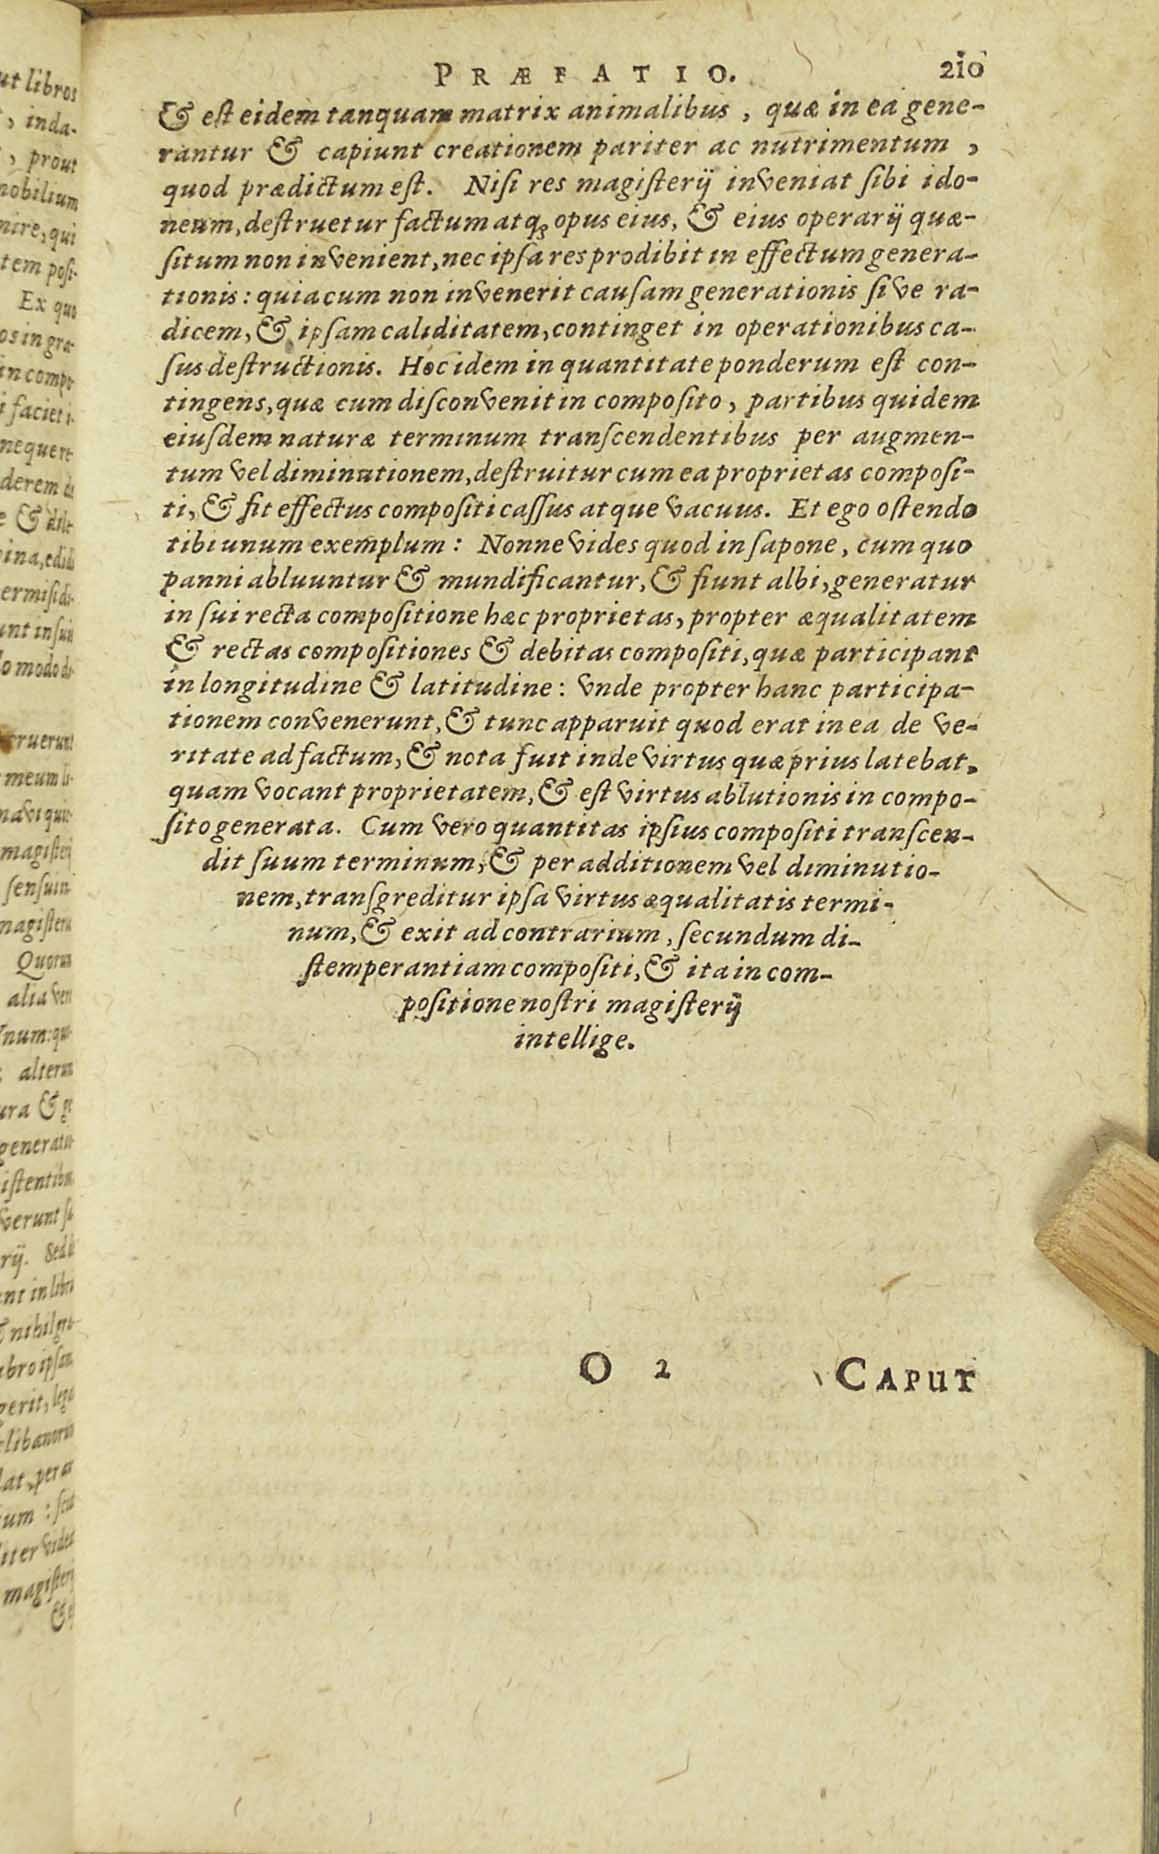 PRÆFATIO. 210
& est eidem tanquam matrix animalibus, quæ in ea gene-
rantur & capiunt creationem pariter ac nutrimentum,
quod prædictum est. Nisi res magisterij inveniat sibi ido-
neum, destruetur factum atq; opus eius, & eius operarij quæ-
situm non invenient, nec ipsa res prodibit in effectum genera-
tionis: quia cum non invenerit causam generationis sive ra-
dicem, & ipsam caliditatem, continget in operationibus ca-
sus destructionis. Hoc idem in quantitate ponderum est con-
tingens, quæ cum disconvenit in composito, partibus quidem
eiusdem naturæ terminum transcendentibus per augmen-
tum vel diminutionem, destruitur cum ea proprietas composi-
ti, & fit effectus compositi cassus atque vacuus. Et ego ostendo
tibi unum exemplum: Nonne vides quod in sapone, cum quo
panni abluuntur & mundificantur, & fiunt albi, generatur
in sui recta compositione hæc proprietas, propter æqualitatem
& rectas compositiones & debitas compositi, quæ participant
in longitudine & latitudine: vnde propter hanc participa-
tionem convenerunt, & tunc apparuit quod erat in ea de ve-
ritate ad factum, & nota fuit inde virtus quæ prius latebat,
quam vocant proprietatem, & est virtus ablutionis in compo-
sito generata. Cum vero quantitas ipsius compositi transcen-
dit suum terminum, & per additionem vel diminutio-
nem, transgreditur ipsa virtus æqualitatis termi-
num, & exit ad contrarium, secundum di-
stemperantiam compositi, & ita in com-
positione nostri magisterij
intellige.
O 2 CAPUT
ut libros
, inda-
, prout
nobilium
mire, qui
tem posi-
Ex quo
os in gra-
in compo-
faciet i-
nequere
derem
& dile-